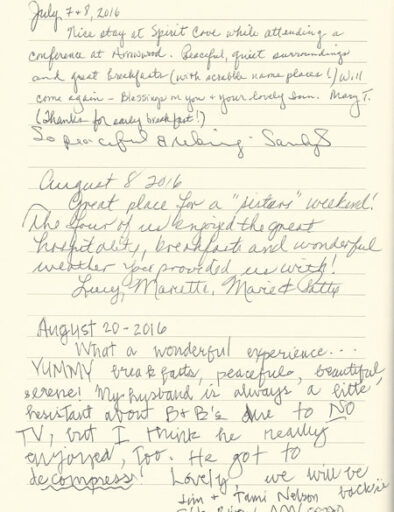 July 7+8, 2016
Nice stay at Spirit Cove while attending a
conference at Arrowwood. Peaceful, quiet surroundings
and great breakfasts (with scrabble name places!) Will
come again - Blessings on you + your lovely Inn. Mary T.
(Thanks for early breakfast!)
So peaceful & relaxing - Sandy
August 8 2016
Great place for a "sisters" weekend!
The four of us enjoyed the great
hospitality, breakfasts and wonderful
weather you provided us with!
Lucy, Mariette, Marie & Patte
AUGUST 20-2016
What a wonderful experience...
YUMMY breakfasts, peaceful, beautiful,
serene! My husband is always a little
hesitant about B+B's due to NO
TV, but I think he really
enjoyed, too. He got to
decompress! Lovely, we will be
back
Jim + Tami Nelson